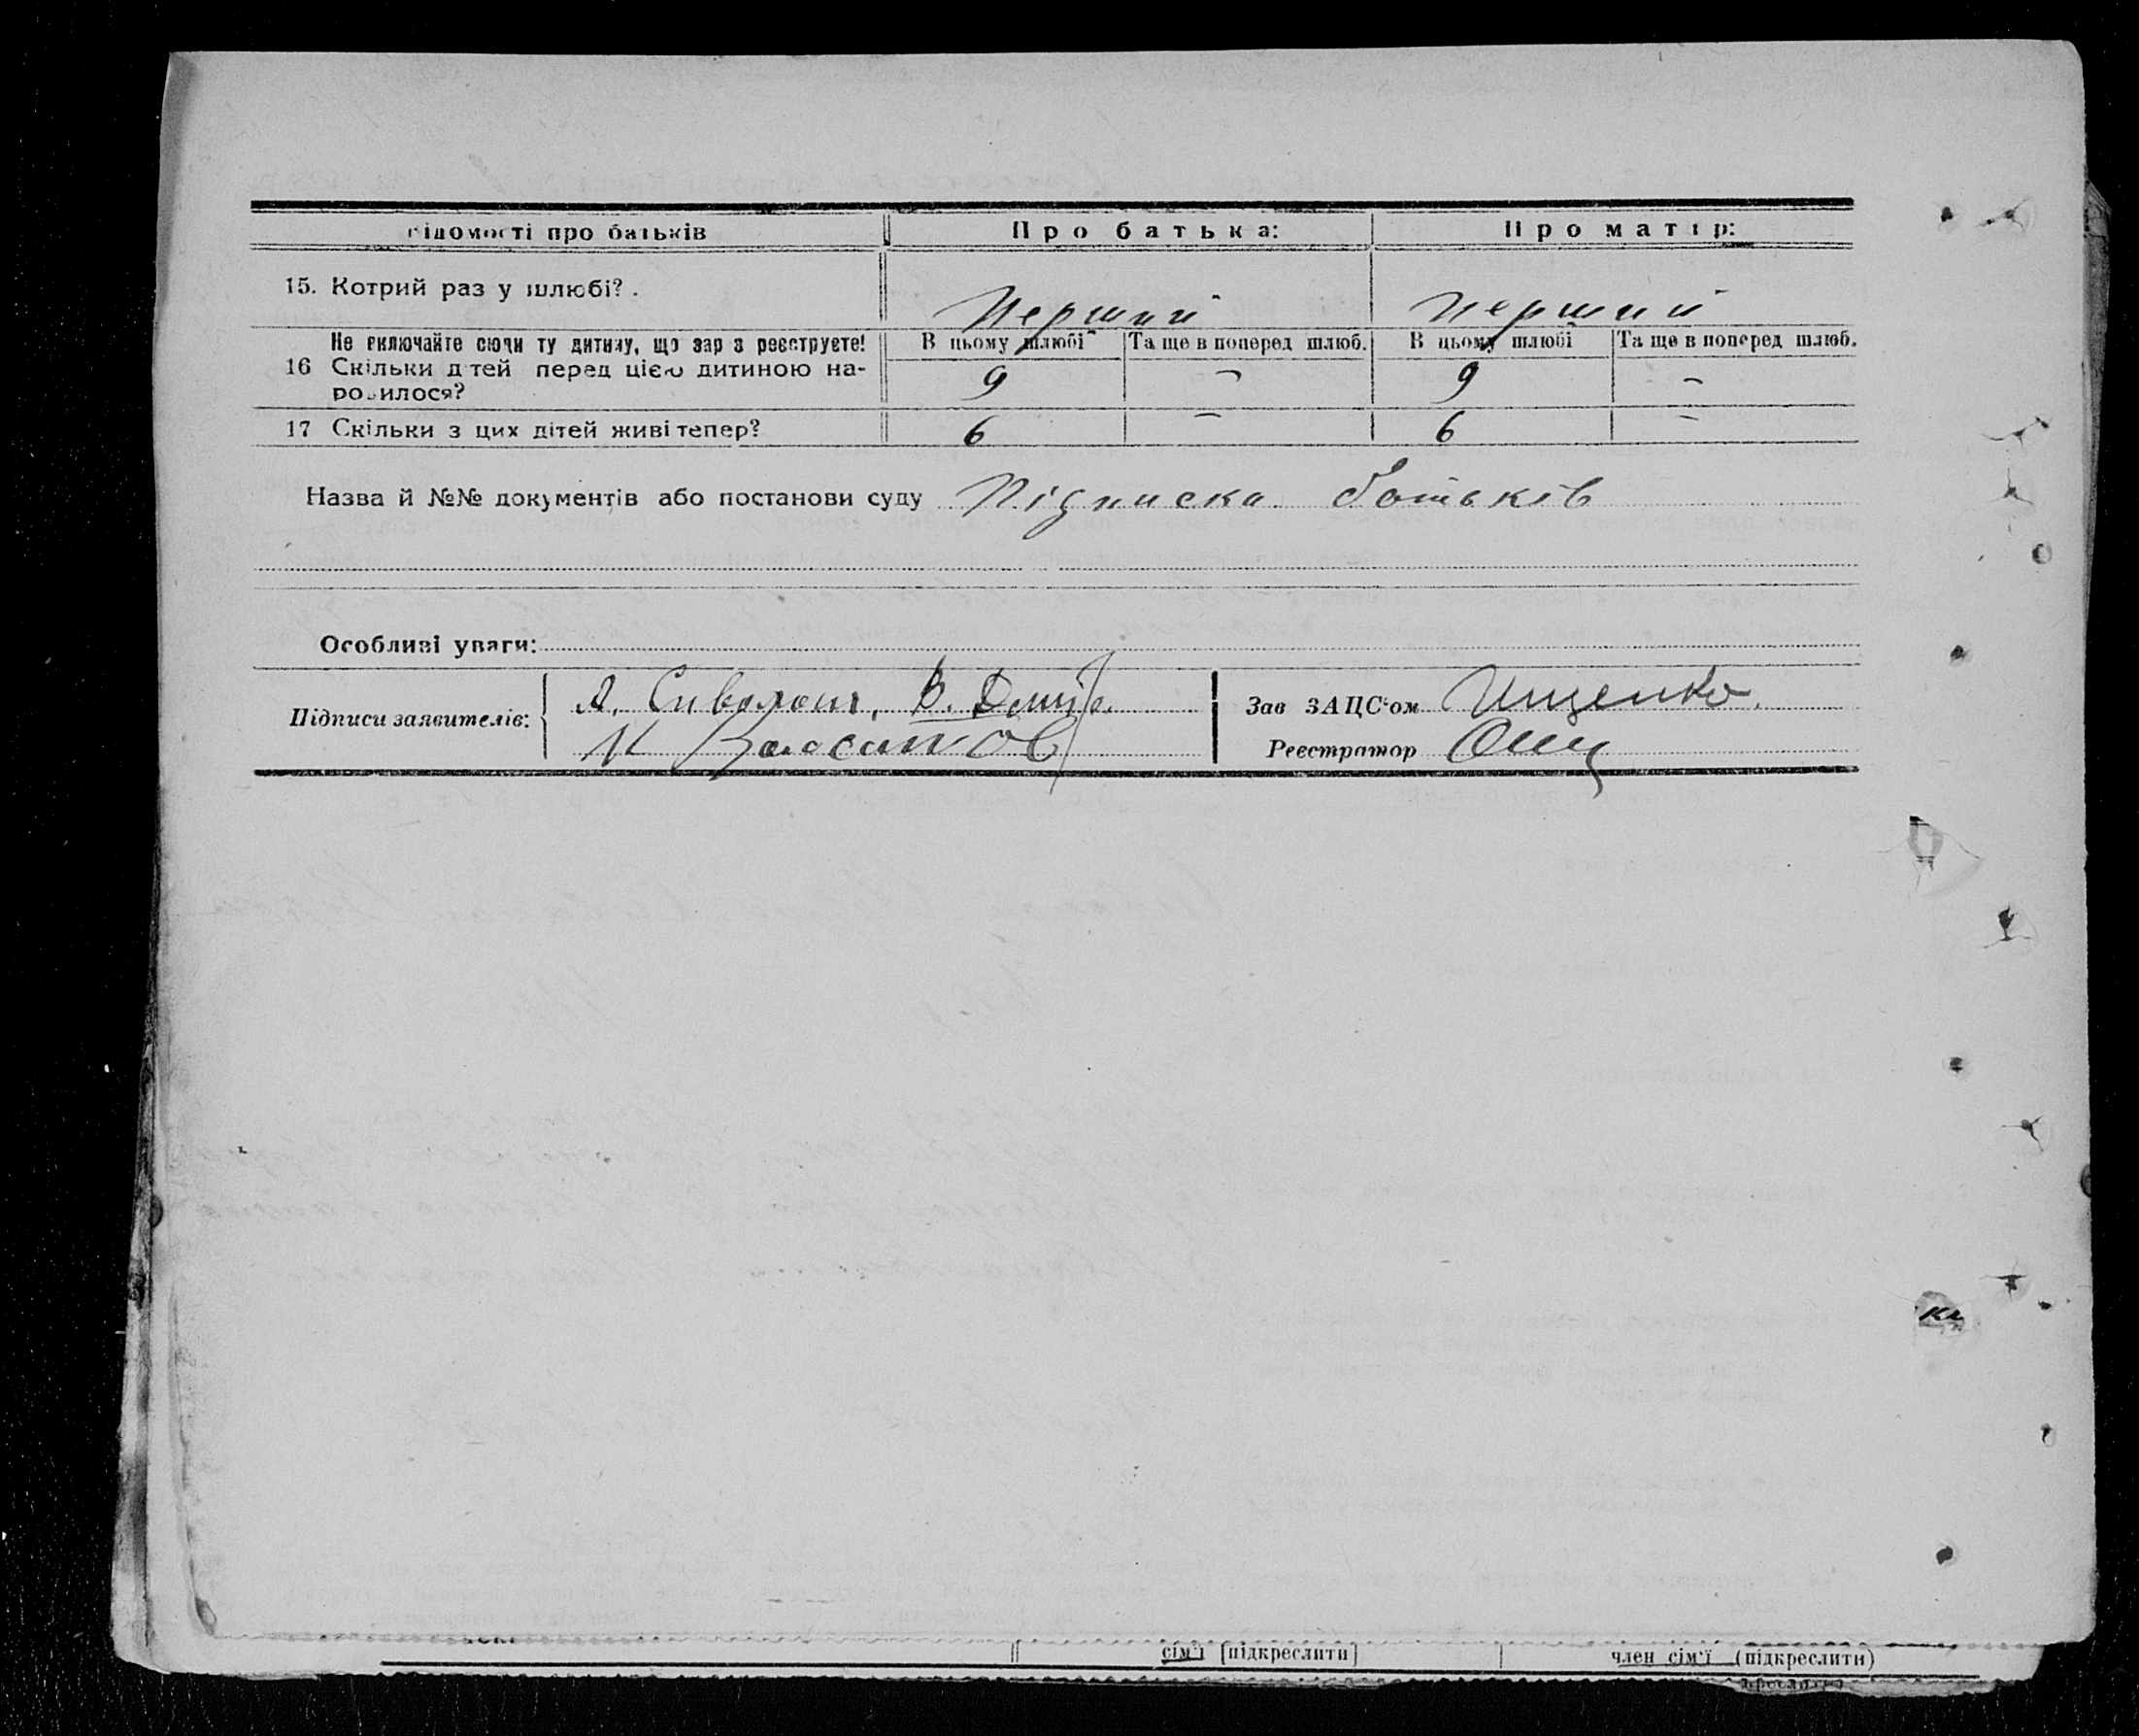 Відомості про батьків Про батька: Про матір:
15. Котрий раз у шлюбі? . Перший Перший
Не включайте сюди ту дитину, що зараз реєструєте! В цьому шлюбі Та ще в поперед шлюб. В цьому шлюбі Та ще в поперед шлюб.
16 Скільки дітей перед цією дитиною на- 9 – 9 –
родилося?
17 Скільки з цих дітей живі тепер? 6 – 6 –
Назва й №№ документів або постанови суду Підписка батьків
Особливі уваги:
Підписи заявителів: А. Сиволап, В.
К
Зав ЗАЦС'ом Ищенко.
Реєстратор
сім'ї (підкреслити) член сім'ї (підкреслити)